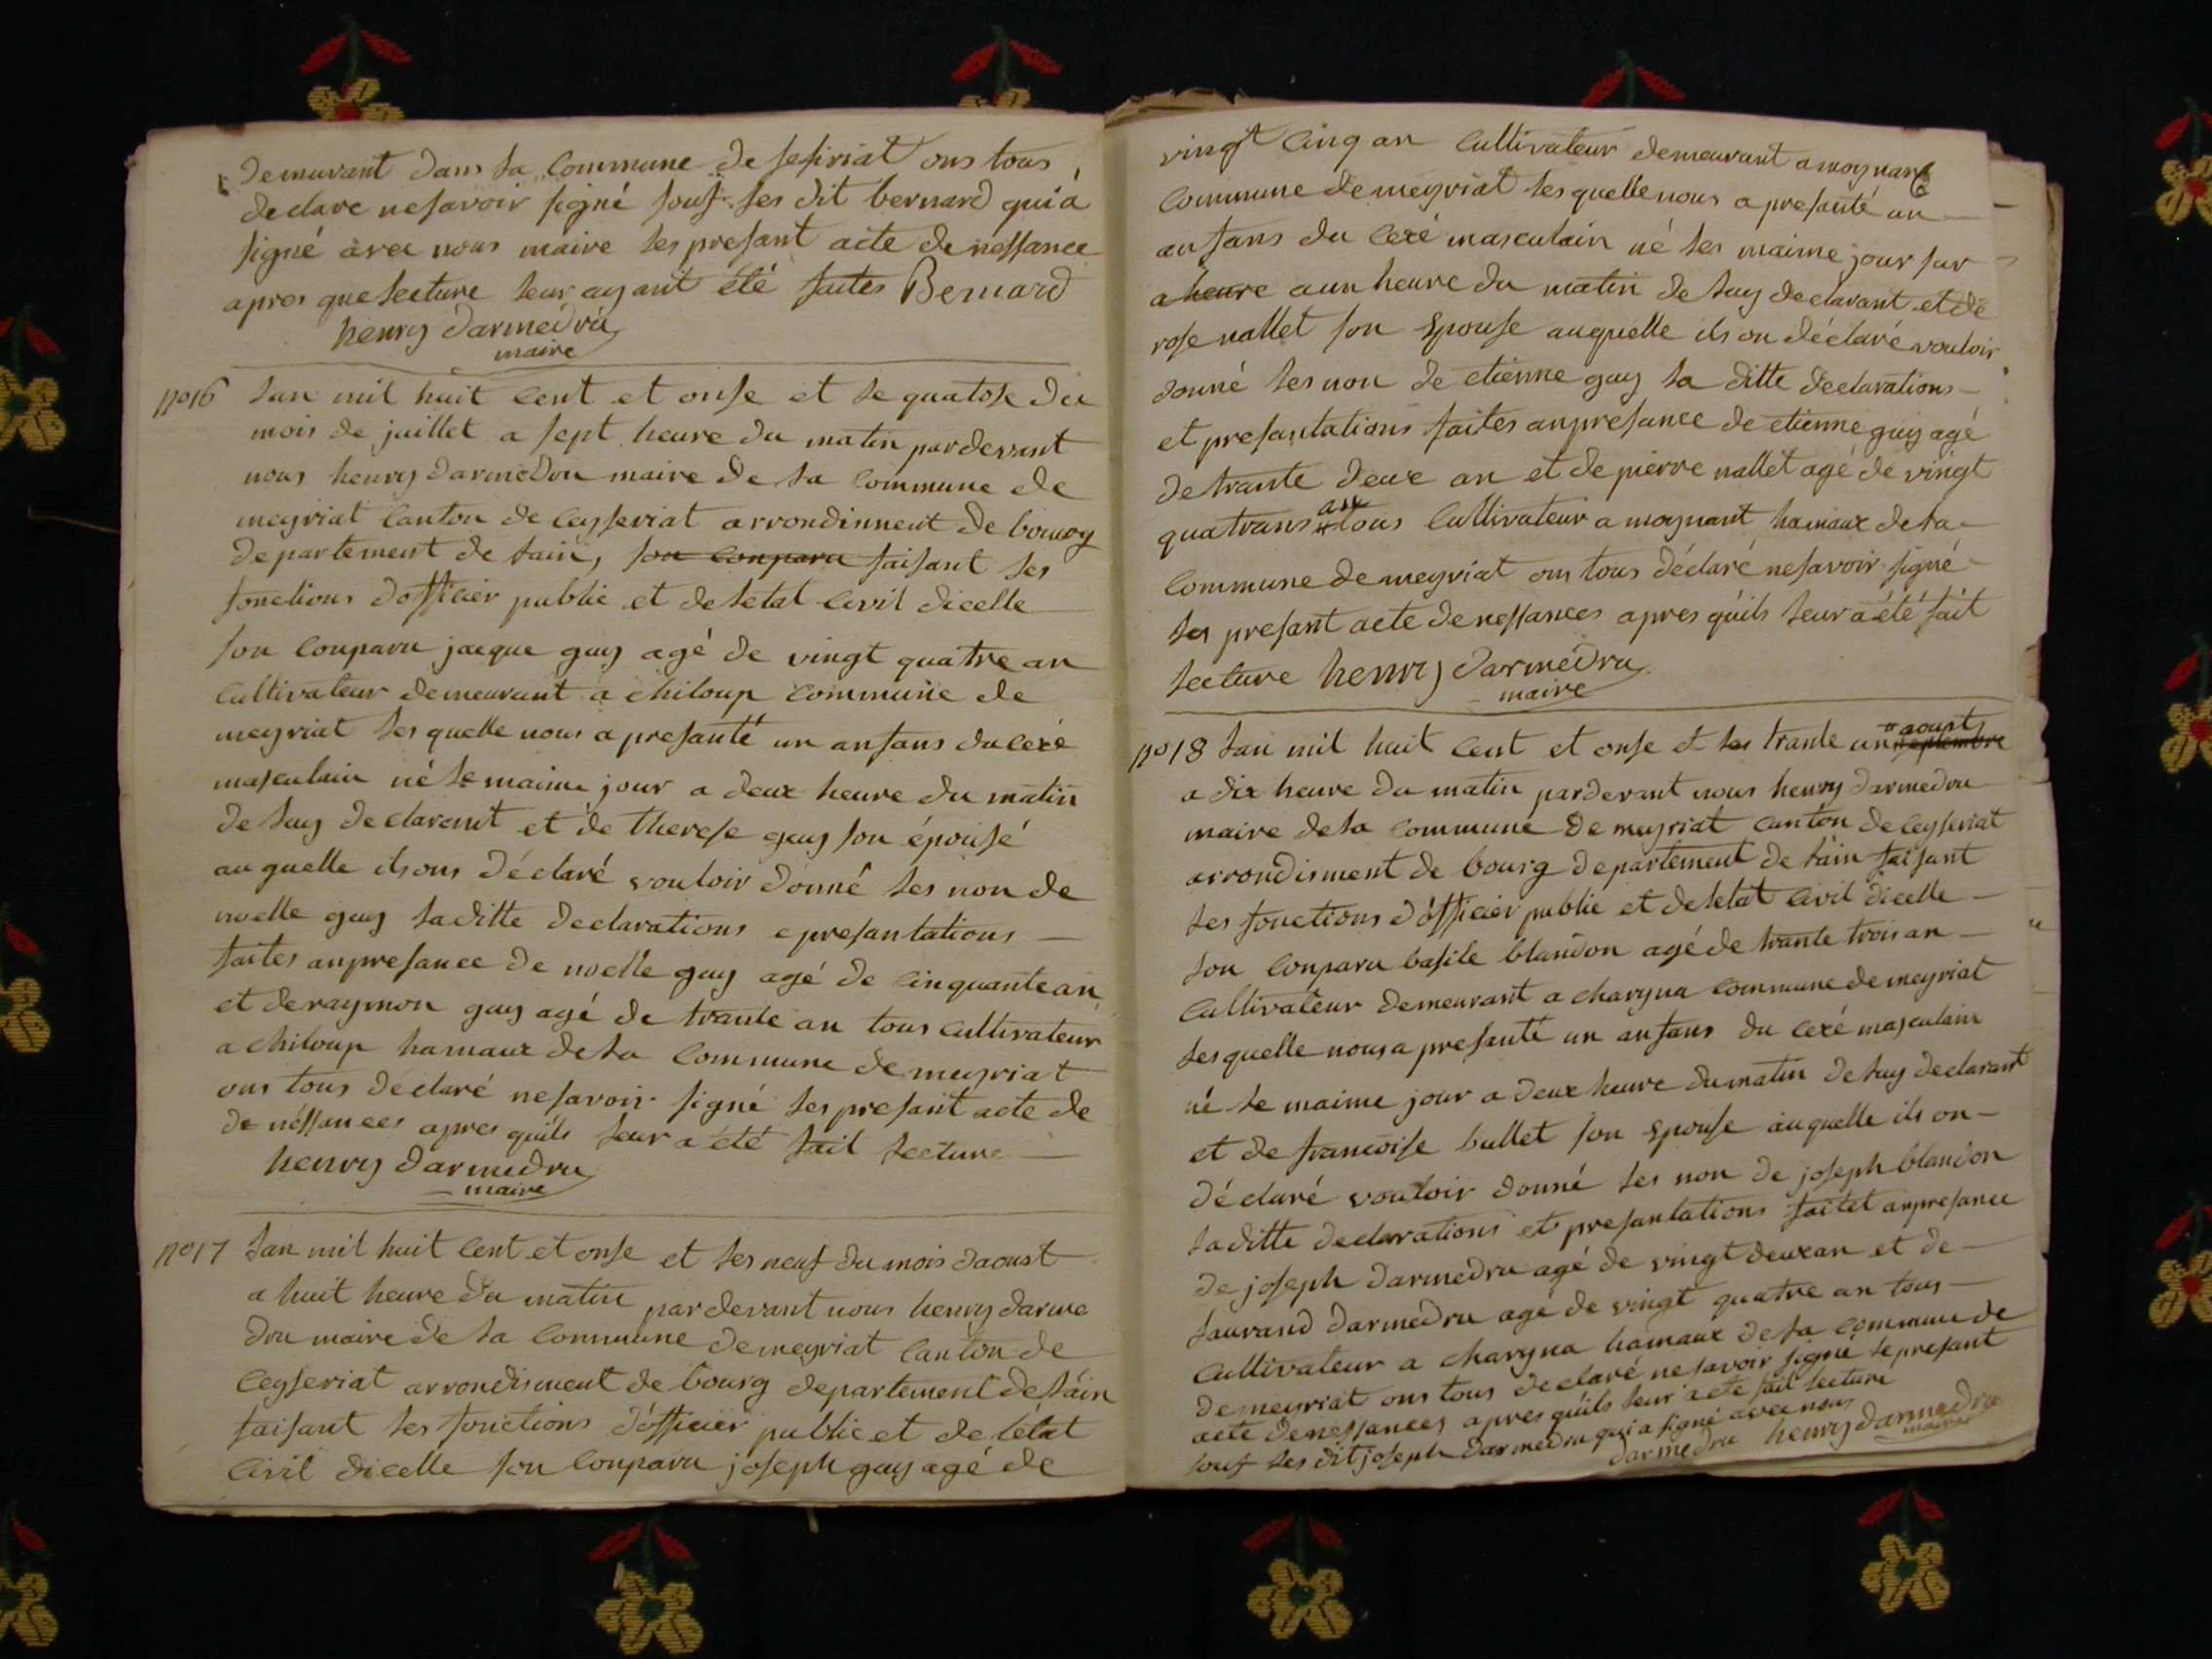 demeurant dans la Commune de sesiriat ons tous
declare nesavoir signé souf les dit bernard qui à
signé avec nous maire les presant acte de nessance
apres que lecture leur ayant été faites Bernard
henry darmedru
maire
no16 Lan mil huit Cent et onse et le quatose du
mois de juillet a sept heure du matin pardevant
nous henry darmedru maire de la Commune de
meyriat Canton de Ceyseriat arrondinnent de bourg
departement de lain, son Conparu faisant les
fonctions dofficier public et de letat Civil dicelle
son Conparu jacque guy agé de vingt quatre an
Cultivateur demeurant a chiloup Commune de
meyriat lesquelle nous a presanté un anfans du cexé
masculain né le maime jour a deux heure du matin
de luy declarant et de therese guy son épousé
auquelle ilsons déclaré vouloir donné les non de
noelle guy laditte declarations e presantations
faites anpresance de noelle guy agé de Cinquante an
et de raymon guy agé de trante an tous cultivateur
a chiloup hamaux de la Commune de meyriat
ons tous déclaré nesavoir signé les presant acte de
de nessances apres quils leur a été fait lecture
henry darmedru
maire
no17 Lan mil huit Cent et onse et les neuf du mois daoust
a huit heure du matin pardevant nous henry darme
dru maire de la Commune de meyriat Canton de
Ceyseriat arrondisment de bourg departement de lain
faisant les fonctions dofficier public et de létat
Civil dicelle son Conparu joseph guy agé de
vingt Cinq an Cultivateur demeurant a moynant
Commune de meyriat lesquelle nous a presanté un
anfans du Cexé masculain né les maime jour sur
a heure a un heure du matin de luy declarant et de
rose nallet son Epouse auquelle ils on déclaré vouloir
donné les non de etienne guy la ditte declarations
et presantations faites anpresance de etienne guy agé
de trante deux an et de pierre nallet agé de vingt
quatrans tous Cultivateur a moynant hamaux de la
Commune de meyriat ons tous déclaré nesavoir signé
les presant acte de nessances apres quils leur a été fait
lecture henry darmedru
maire
no18 Lan mil huit Cent et onse et les trante un aoust septembre
a dix heure du matin pardevant nous henry darmedru
maire de la Commune de meyriat Canton de Ceyseriat
arrondisment de bourg departement de lain faisant
les fonctions dofficier public et de letat Civil dicelle
son Conparu basile blandon agé de trante trois an
Cultivateur demeurant a charyna Commune de meyriat
lesquelle nous a presanté un anfans du cexé masculain
né le maime jour a deux heure du matin de luy declarant
et de francoise bullet son Epouse auquelle ils on
déclaré vouloir donné les non de joseph blandon
laditte declarations et presantations faitet anpresance
de joseph darmedru agé de vingt deuxan et de
laurand darmedru agé de vingt quatre an tous
Cultivateur a charyna hamaux de la commune de
de meyriat ons tous declaré nesavoir signé le presant
acte de nessances apres quils leur a été fait lecture
souf les dit joseph darmedru qui a signé avec nous
darmedru henry darmedru
maire